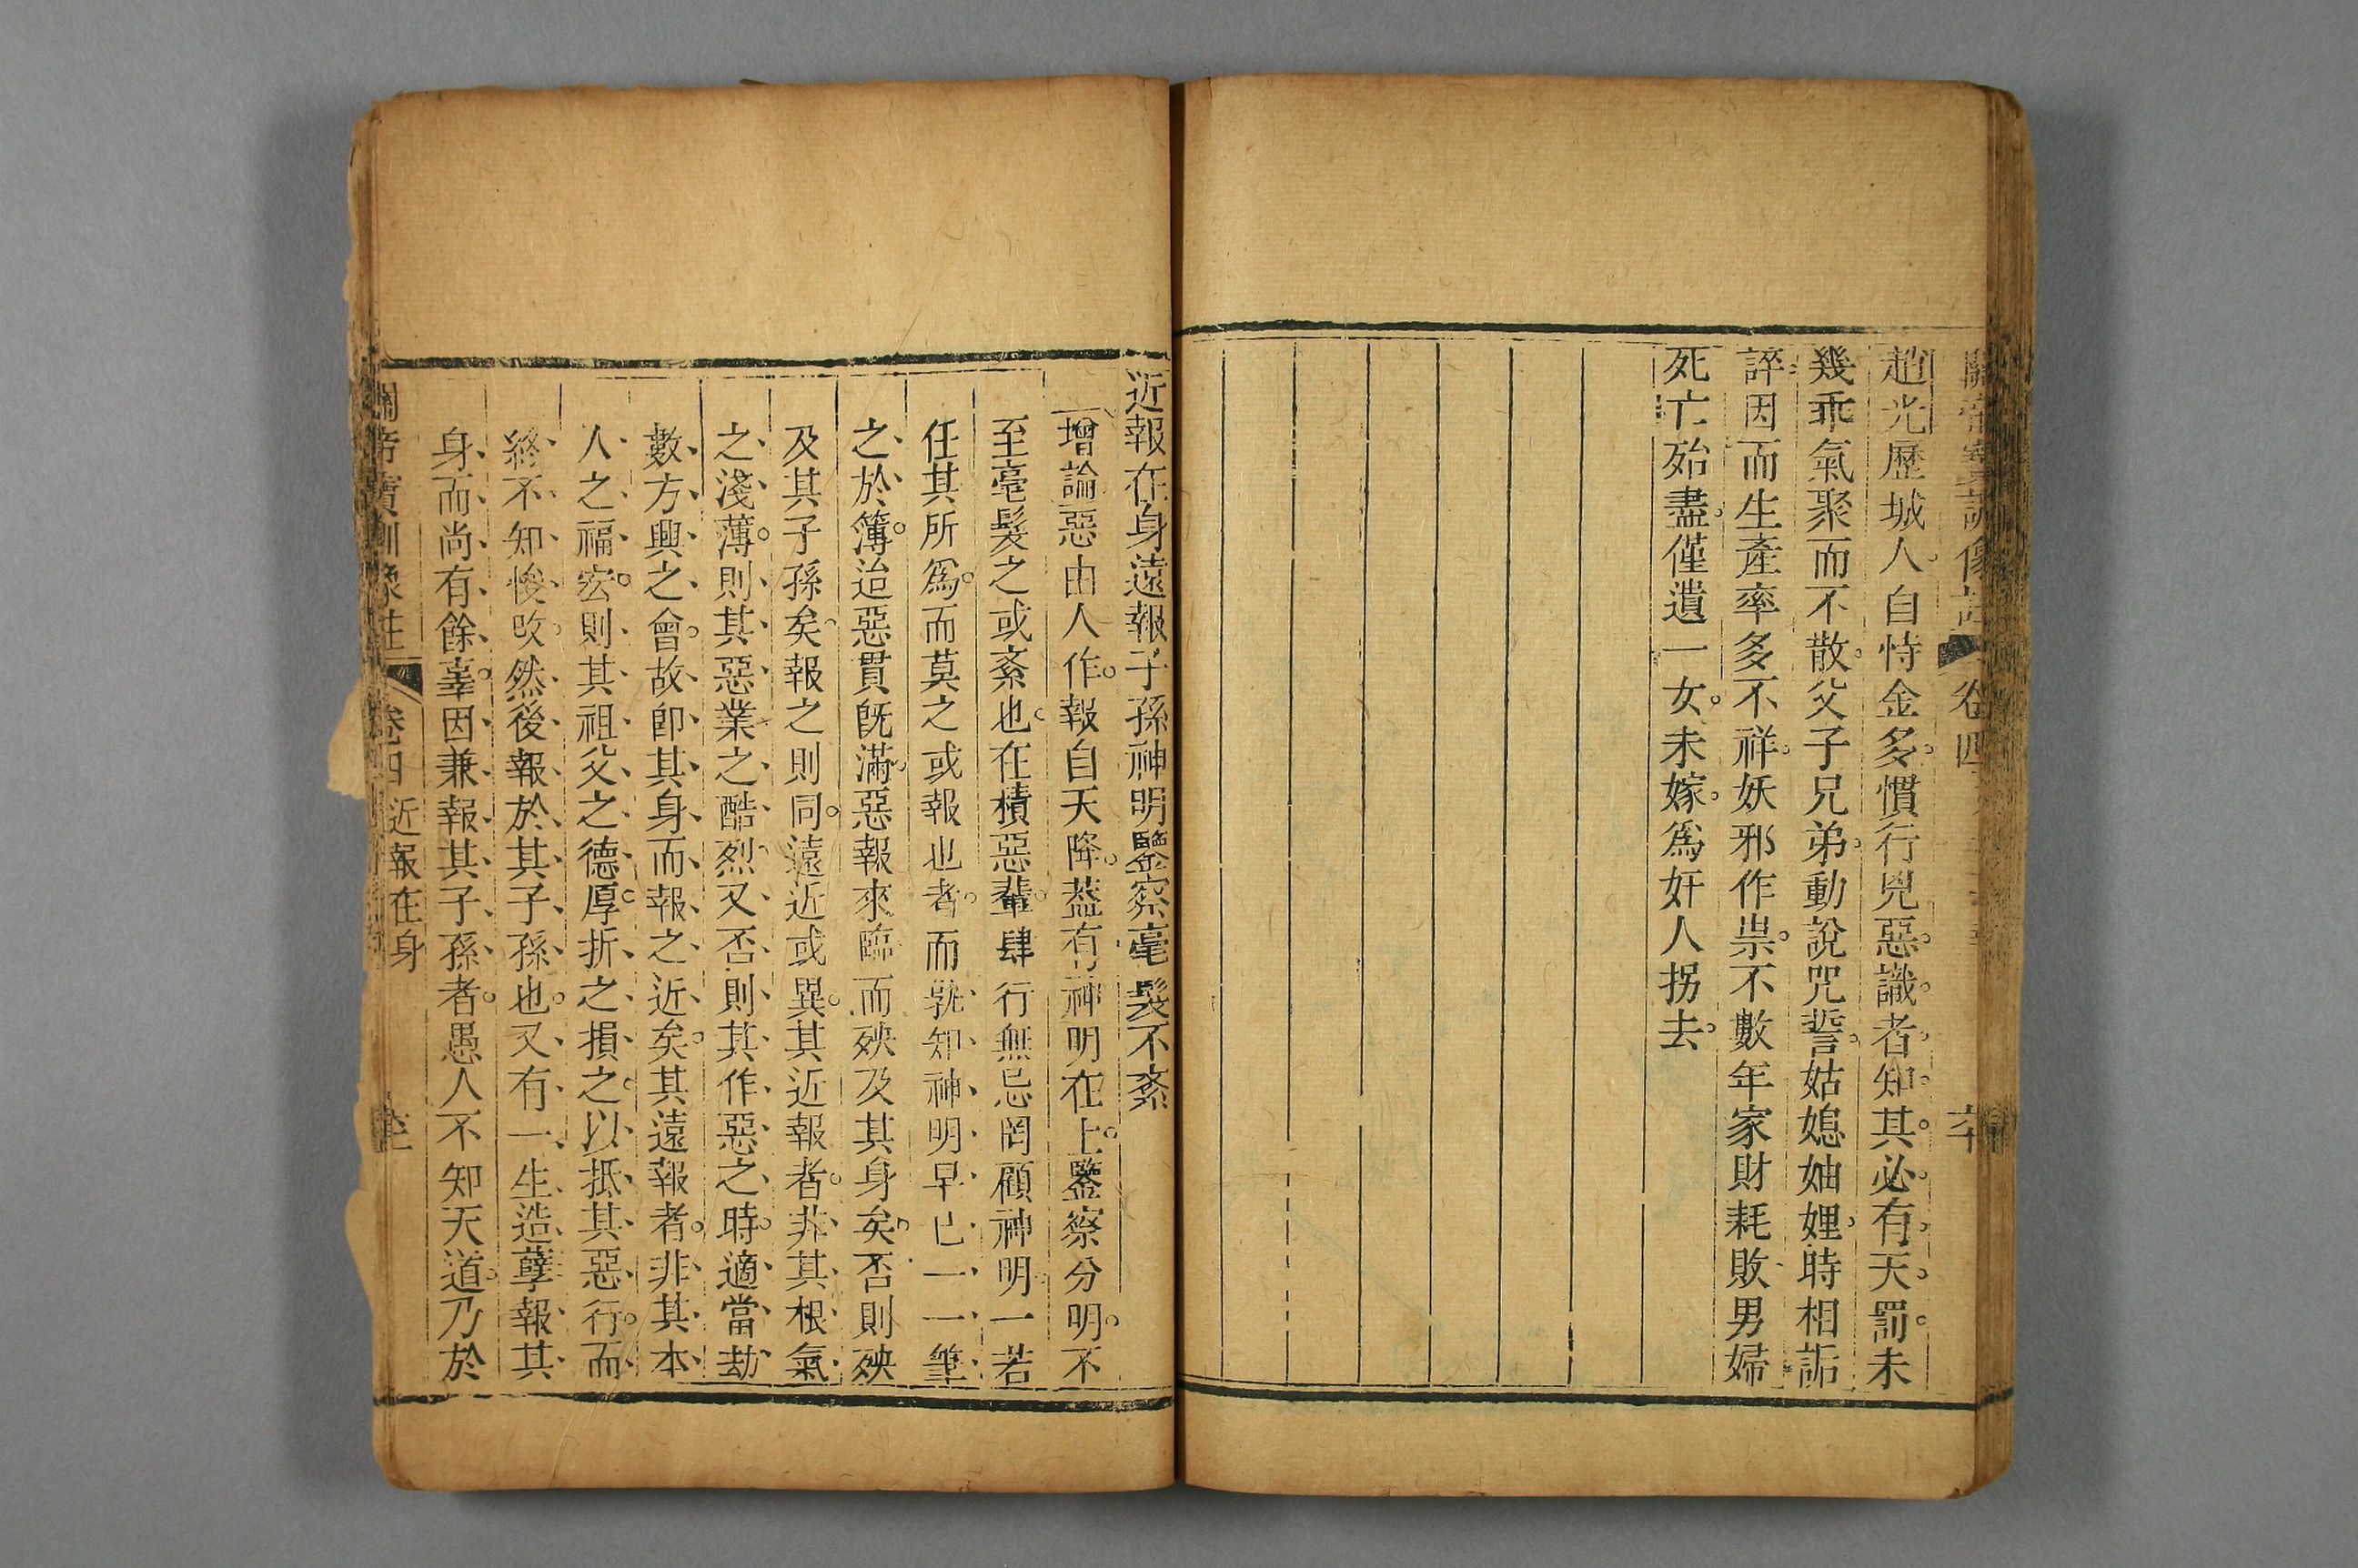 關帝寶訓像註 卷四 六十
趙光歷城人自恃金多慣行兇惡識者知其必有天罰未
幾乖氣聚而不散父子兄弟動說咒誓姑媳妯娌時相詬
誶因而生產率多不祥妖邪作祟不數年家財耗敗男婦
死亡殆盡僅遺一女未嫁為奸人拐去
近報在身遠報子孫神明鑒察毫髮不紊
增論惡由人作報自天降葢有神明在上鑒察分明不
至毫髮之或紊也在積惡輩肆行無忌罔顧神明一若
任其所為而莫之或報也者而孰知神明早已一一筆
之於簿迨惡貫旣滿惡報來臨而殃及其身矣否則殃
及其子孫矣報之則同遠近或異其近報者非其根氣
之淺薄則其惡業之酷烈又否則其作惡之時適當劫
數方興之會故卽其身而報之近矣其遠報者非其本
人之福宏則其祖父之德厚折之損之以抵其惡行而
終不知悛改然後報於其子孫也又有一生造孽報其
身而尚有餘辜因兼報其子孫者愚人不知天道乃於
關帝寶訓像註 卷四 近報在身